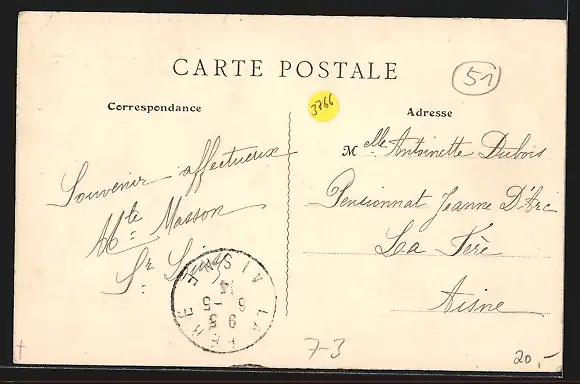 CARTE POSTALE
51
3766
Correspondance
Adresse
Souvenir affectueux
Masson
Sr
Melle Antoinette Dubois
Pensionnat Jeanne D'Arc
La Fère
Aisne
LA FERE AISNE
9 5
6 -5
14
7-3
20,-